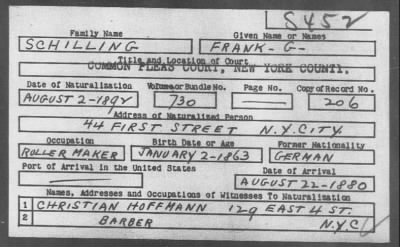 S452
Family Name Given Name or Names
SCHILLING FRANK-G-
Title and Location of Court
COMMON PLEAS COURT, NEW YORK COUNTY.
Date of Naturalization Volume or Bundle No. Page No. Copy of Record No.
AUGUST 2-1892 730 — 206
Address of Naturalized Person
44 FIRST STREET N.Y.CITY.
Occupation Birth Date or Age Former Nationality
ROLLER MAKER JANUARY 2-1863 GERMAN
Port of Arrival in the United States Date of Arrival
— AUGUST 22-1880
Names, Addresses and Occupations of Witnesses To Naturalization
1 CHRISTIAN HOFFMANN 129 EAST 4 ST.
2 BARBER N.Y.C.